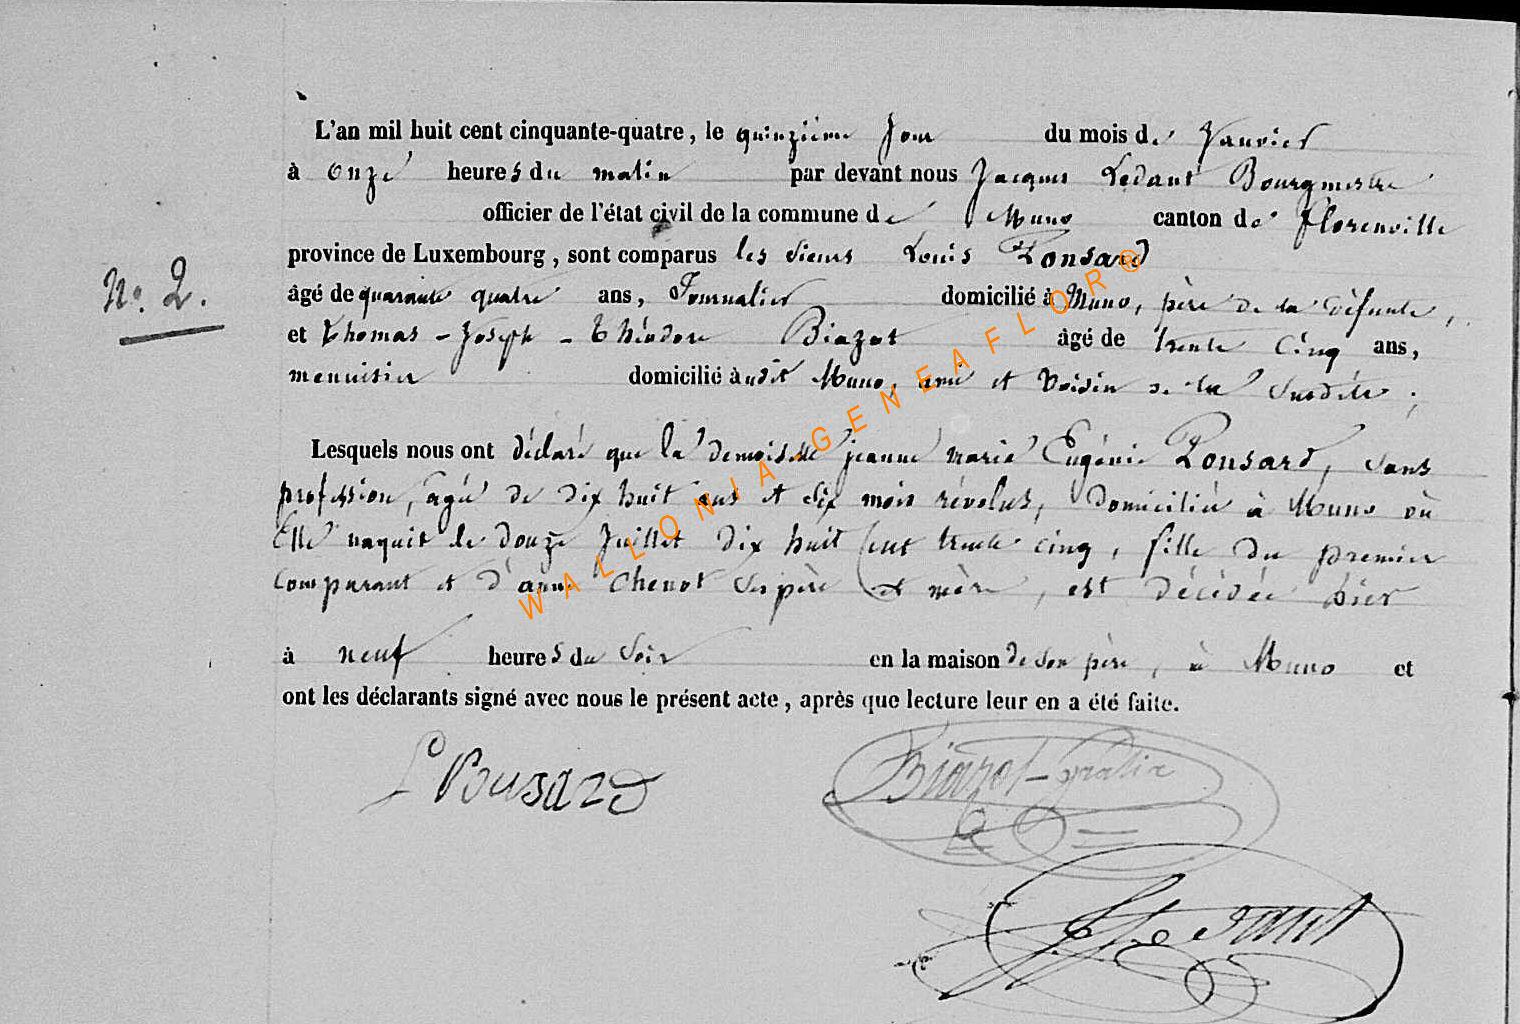 L'an mil huit cent cinquante-quatre, le quinzième jour du mois de Janvier
à onze heures du matin par devant nous Jacques Ledant Bourgmestre
officier de l'état civil de la commune de Muno canton de Florenville
province de Luxembourg, sont comparus les sieurs Louis Ponsard
N.º 2.
âgé de quarante quatre ans, Journalier domicilié à Muno, père de la défunte,
et Thomas - Joseph - Théodore Biazot âgé de trente cinq ans,
menuisier domicilié audit Muno, ami et voisin de la susdite ;
Lesquels nous ont déclaré que la demoiselle jeanne marie Eugénie Ponsard, sans
profession, âgée de dix huit ans et six mois révolus, domiciliée à Muno où
Elle naquit le douze Juillet dix huit cent trente cinq, fille du premier
comparant et d'anne Chenot ses père et mère, est décédée hier
à neuf heures du soir en la maison de son père, à Muno et
ont les déclarants signé avec nous le présent acte, après que lecture leur en a été faite.
L Ponsard
Biazot-
Ledant
WALLONIA-GENEAFLOR®